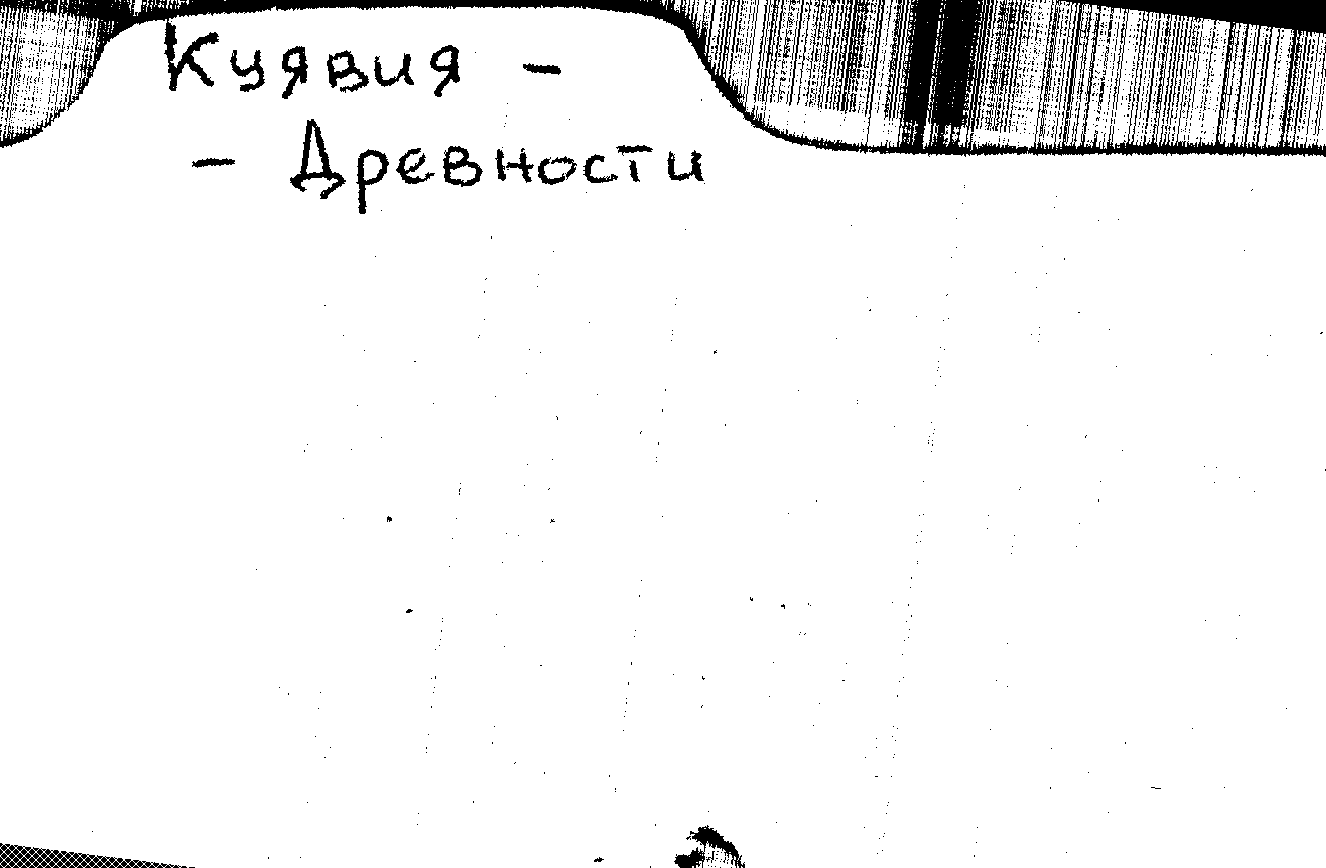 Куявия -
- Древности